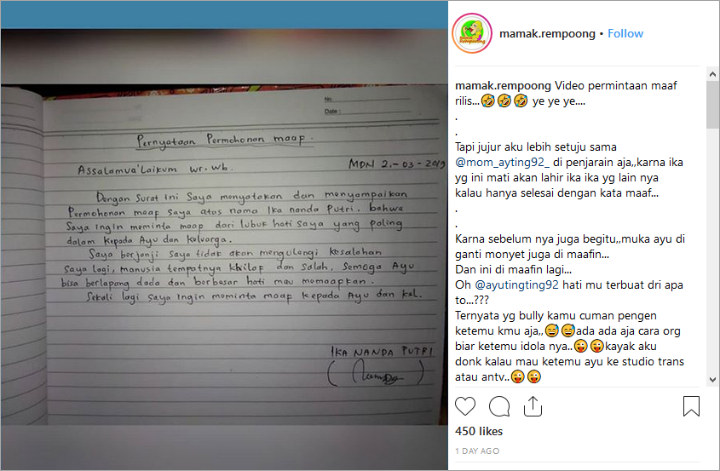 No.
Date:
Pernyataan Permohonan maaf.
Assalamua'laikum wr. wb.
MDN 2.-03-2019
Dengan Surat ini Saya menyatakan dan menyampaikan
Permohonan maaf saya atas nama Ika nanda Putri. bahwe
Saya ingin meminta maaf dari lubuk hati saya yang paling
dalam kepada Ayu dan kelvarga.
Saya berjanji saya tidak akan mengulangi kesalahan
saya lagi, manusia tempatnya khilaf dan salah, semoga Ayu
bisa berlapang dada dan berbesar hati mau memaapkan.
Sekali lagi saya ingin meminta maaf kepada Ayu dan kel.
IKA NANDA PUTRI
mamak.rempoong • Follow
mamak.rempoong Video permintaan maaf
rilis...🤣🤣🤣 ye ye ye....
.
.
Tapi jujur aku lebih setuju sama
@mom_ayting92_ di penjarain aja,,karna ika
yg ini mati akan lahir ika ika yg lain nya
kalau hanya selesai dengan kata maaf...
.
.
Karna sebelum nya juga begitu,,muka ayu di
ganti monyet juga di maafin...
Dan ini di maafin lagi...
Oh @ayutingting92 hati mu terbuat dri apa
to...???
Ternyata yg bully kamu cuman pengen
ketemu kmu aja,,😅😅ada ada aja cara org
biar ketemu idola nya..😜😜kayak aku
donk kalau mau ketemu ayu ke studio trans
atau antv..😜😜
450 likes
1 DAY AGO